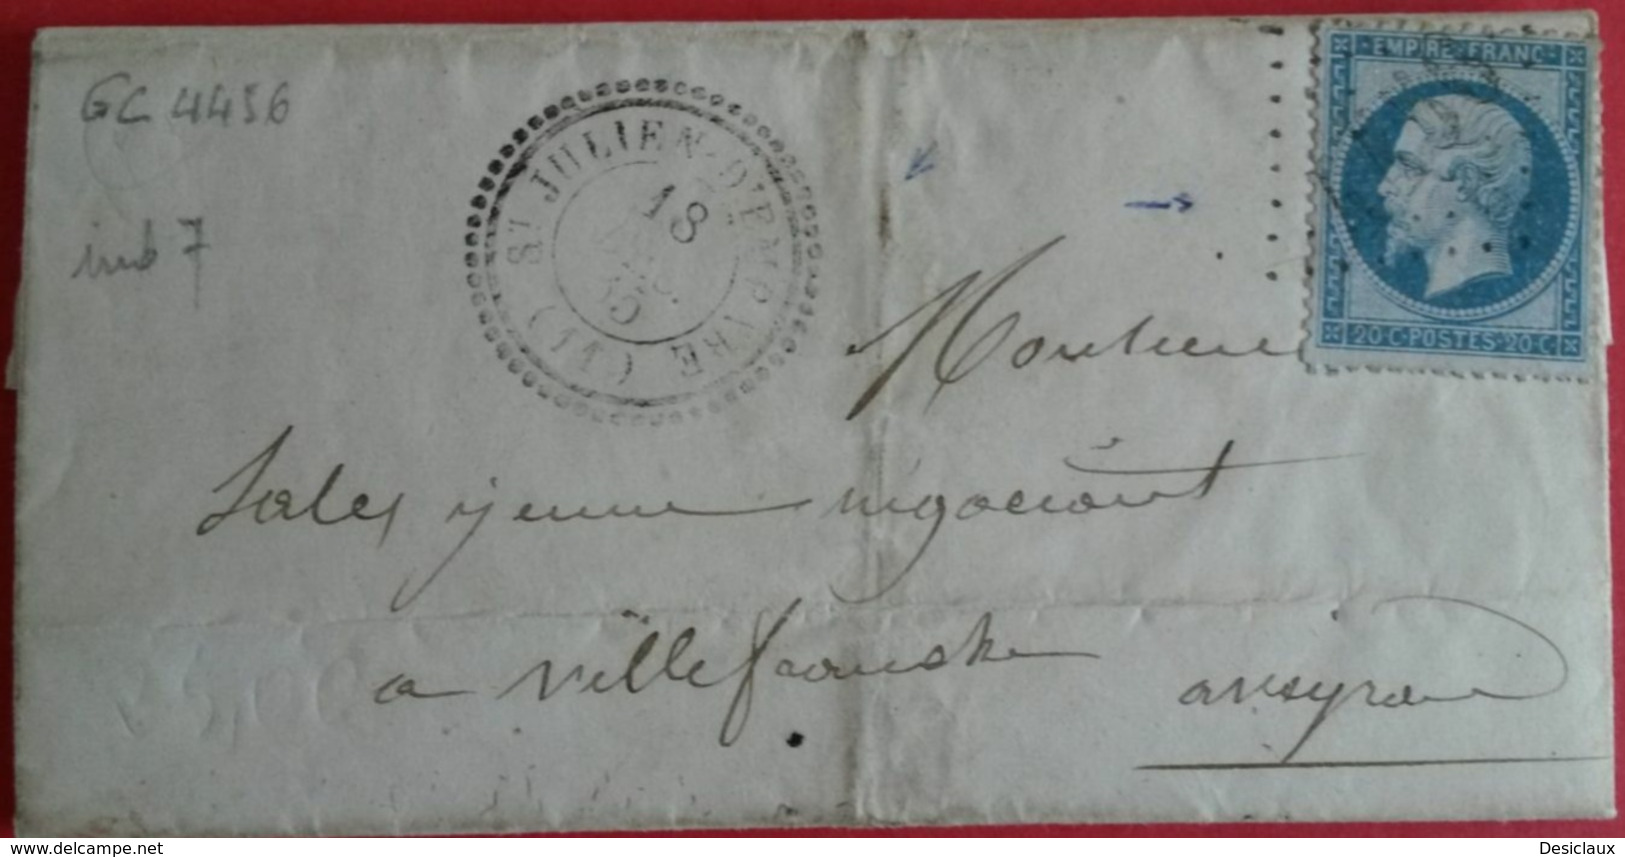 GC 4456
ind 7
ST JULIEN-D'EMPARE (11)
18
65
EMPIRE FRANC
20 C POSTES 20 C
Monsieur
Sales jeune négociant
a villefranche aveyron
www.delcampe.net
Desiclaux